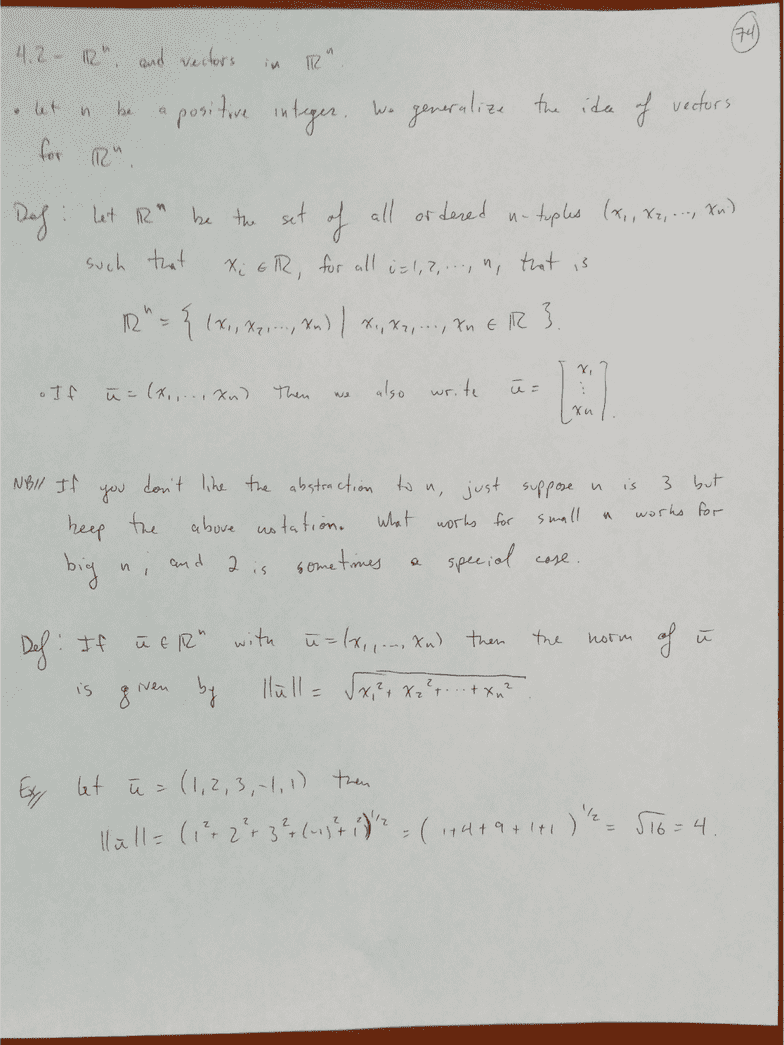 74
4.2 - ℝⁿ, and vectors in ℝⁿ
• let n be a positive integer. We generalize the idea of vectors
for ℝⁿ.
Def: Let ℝⁿ be the set of all ordered n-tuples (x₁, x₂, ..., xₙ)
such that xᵢ ∈ ℝ, for all i=1,2,..., n, that is
ℝⁿ = { (x₁, x₂, ..., xₙ) | x₁, x₂, ..., xₙ ∈ ℝ }.
• If ū = (x₁, ..., xₙ) then we also write ū = [x₁ ⋮ xₙ].
NB// If you don't like the abstraction to n, just suppose n is 3 but
keep the above notation. What works for small n works for
big n, and 2 is sometimes a special case.
Def: If ū ∈ ℝⁿ with ū = (x₁, ..., xₙ) then the norm of ū
is given by ||ū|| = √(x₁² + x₂² + ... + xₙ²)
Ex// let ū = (1, 2, 3, -1, 1) then
||ū|| = (1² + 2² + 3² + (-1)² + 1²)^1/2 = (1+4+9+1+1)^1/2 = √16 = 4.